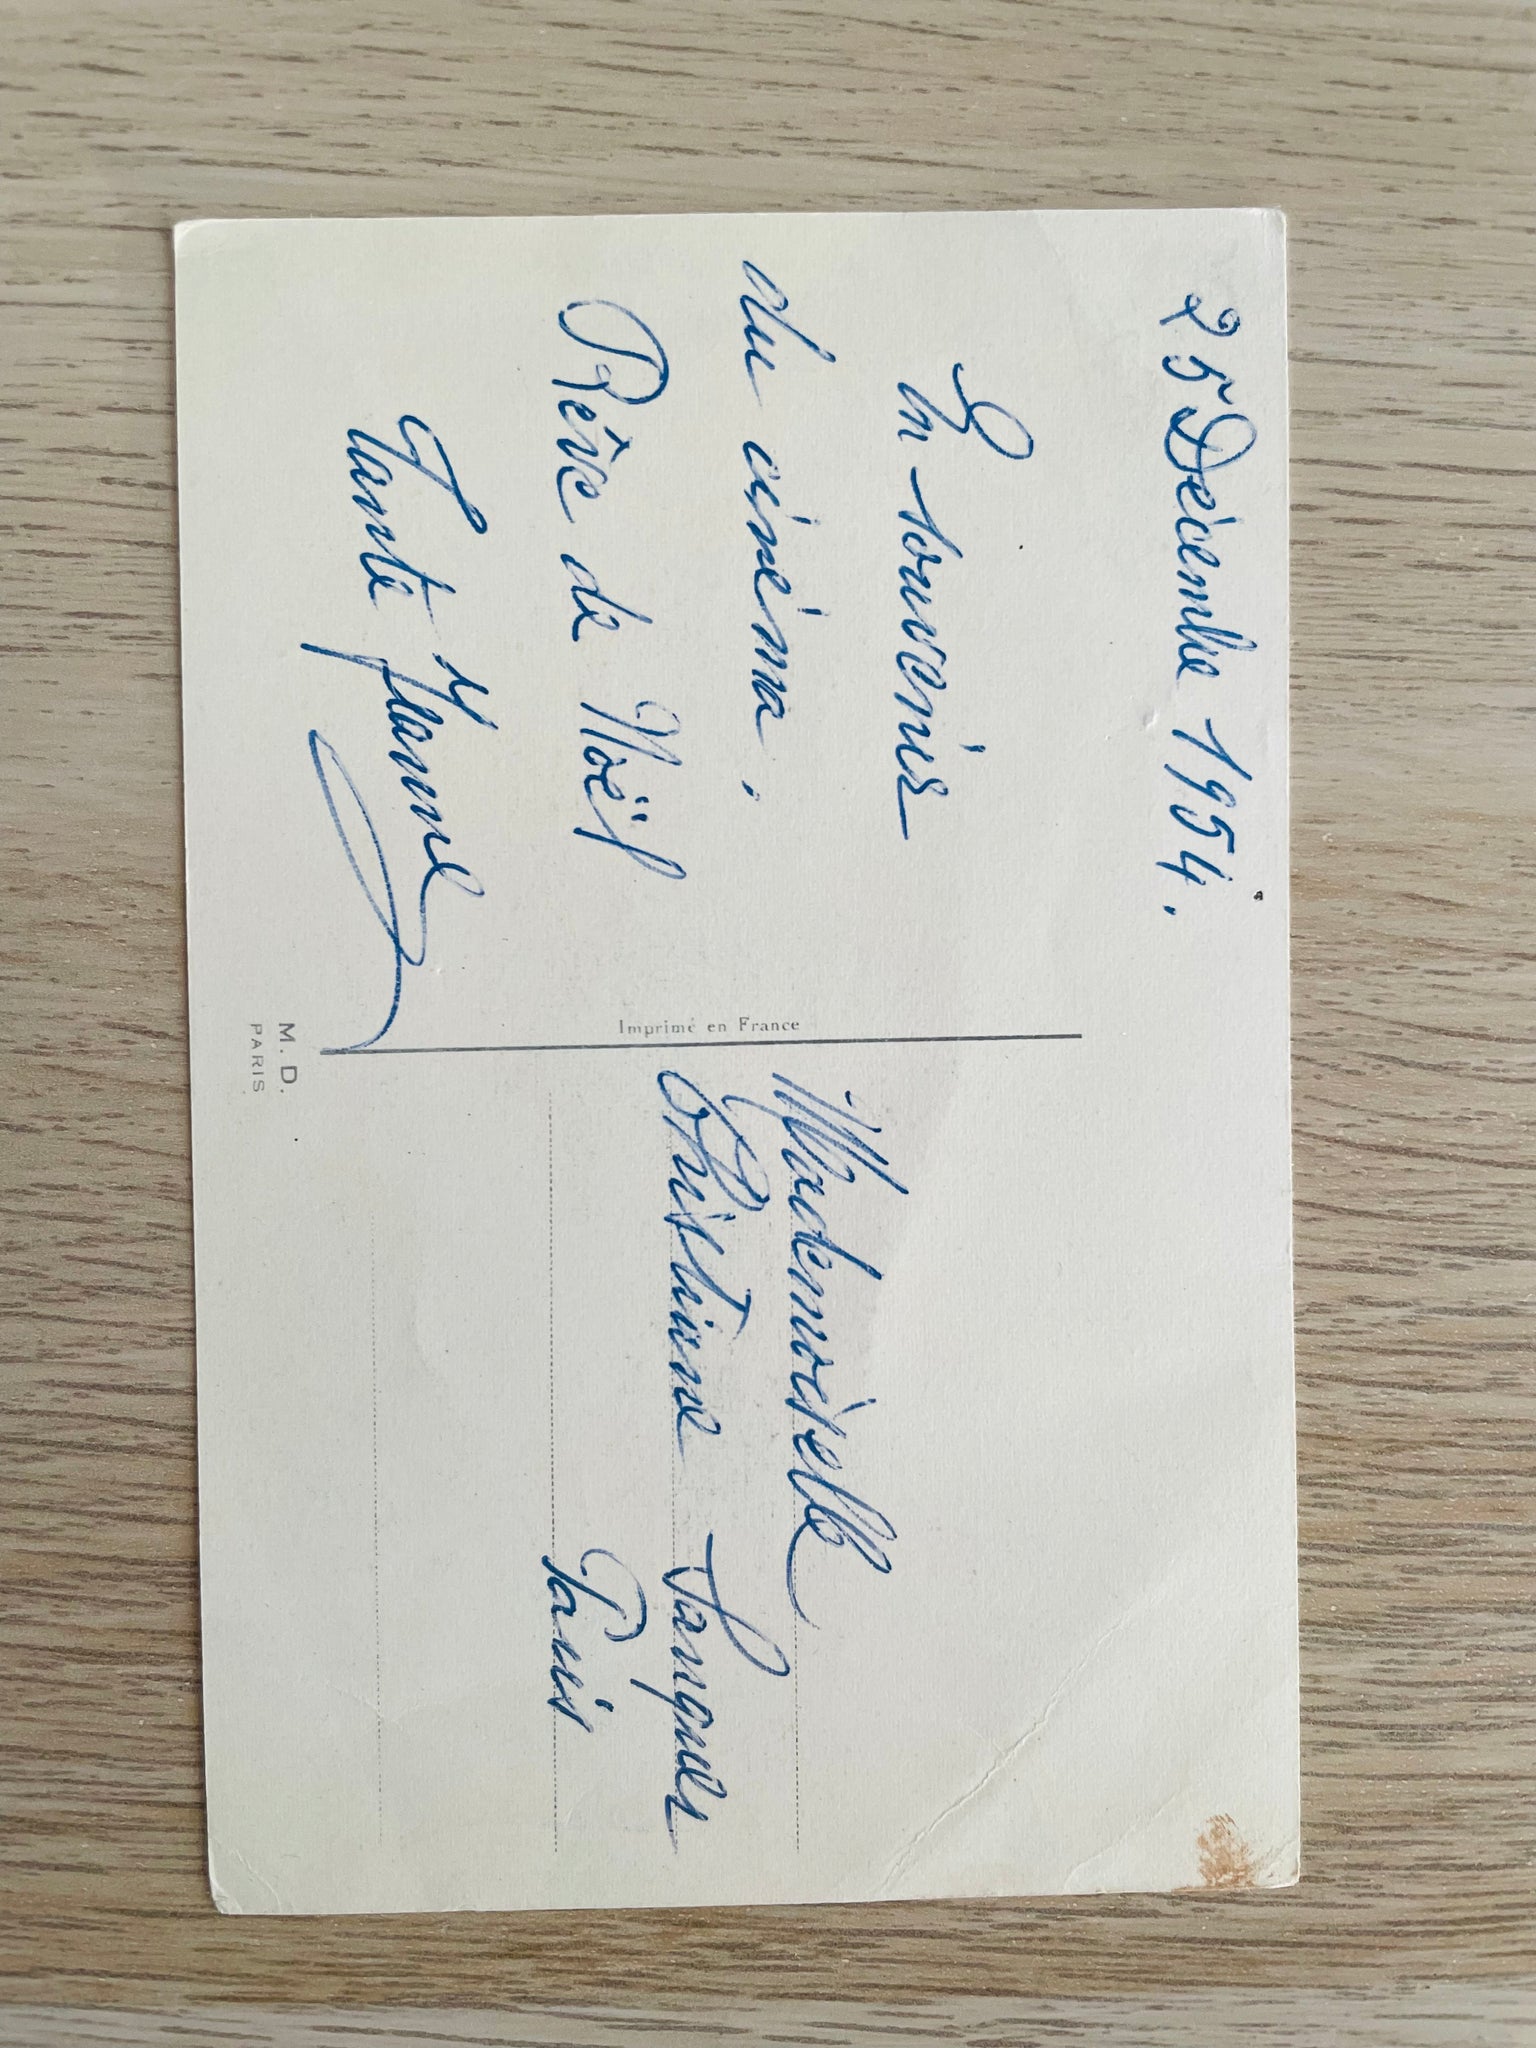 25 Décembre 1954.
En souvenir
du cinéma.
Rêve de Noël
Tante Jeanne
Imprimé en France
M. D.
PARIS
Mademoiselle
Christiane
Paris